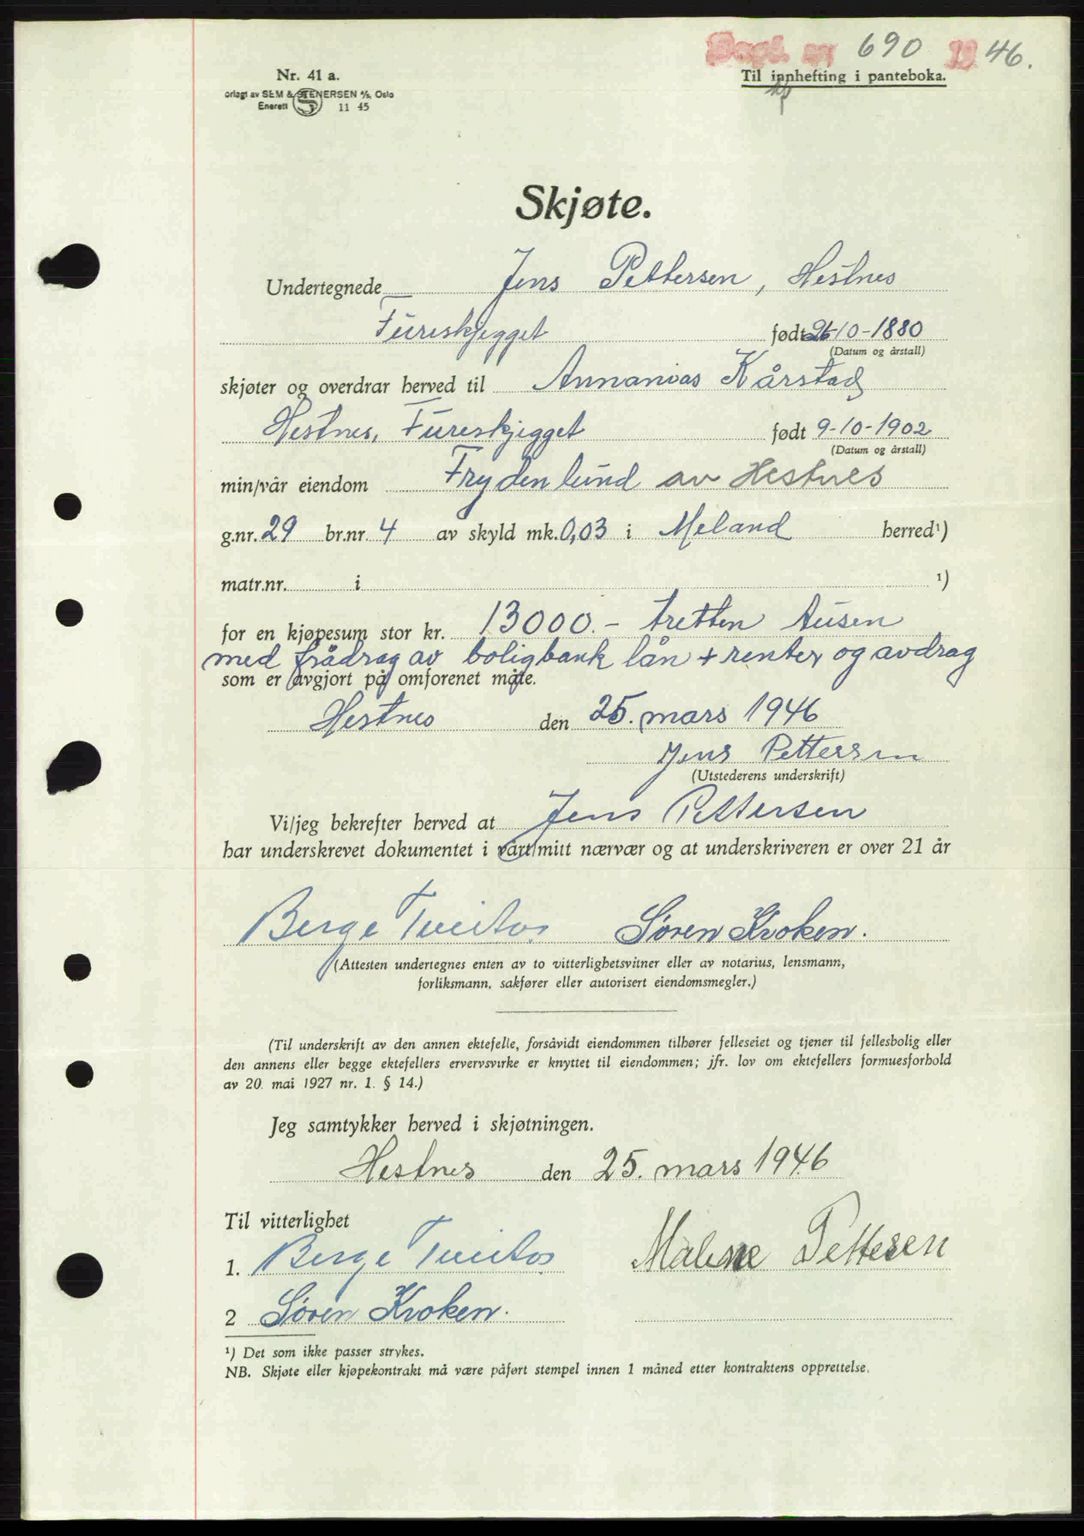 Dagb. nr 690 1946.
Nr. 41 a.
Til innhefting i panteboka.
orlagt av SEM & STENERSEN A/S, Oslo
Enerett S 11 45
Skjøte.
Undertegnede Jens Pettersen, Hestnes
Füreskjegget født 26-10-1880
(Datum og årstall)
skjøter og overdrar herved til Annanias Kårstad
Hestnes, Füreskjegget født 9-10-1902
(Datum og årstall)
min/vår eiendom Frydenlund av Hestnes
g.nr. 29 br.nr. 4 av skyld mk. 0,03 i Meland herred¹)
matr.nr. i ¹)
for en kjøpesum stor kr. 13000.- tretten tusen
med frådrag av boligbank lån + renter og avdrag
som er avgjort på omforenet måte.
Hestnes den 25. mars 1946
Jens Pettersen
(Utstederens underskrift)
Vi/jeg bekrefter herved at Jens Pettersen
har underskrevet dokumentet i vårt/mitt nærvær og at underskriveren er over 21 år
Berge Tveitos Søren Kroken.
(Attesten undertegnes enten av to vitterlighetsvitner eller av notarius, lensmann,
forliksmann, sakfører eller autorisert eiendomsmegler.)
(Til underskrift av den annen ektefelle, forsåvidt eiendommen tilhører felleseiet og tjener til fellesbolig eller
den annens eller begge ektefellers ervervsvirke er knyttet til eiendommen; jfr. lov om ektefellers formuesforhold
av 20. mai 1927 nr. 1. § 14.)
Jeg samtykker herved i skjøtningen.
Hestnes den 25. mars 1946
Til vitterlighet
1. Berge Tveitos Malene Pettersen
2 Søren Kroken.
¹) Det som ikke passer strykes.
NB. Skjøte eller kjøpekontrakt må være påført stempel innen 1 måned etter kontraktens opprettelse.